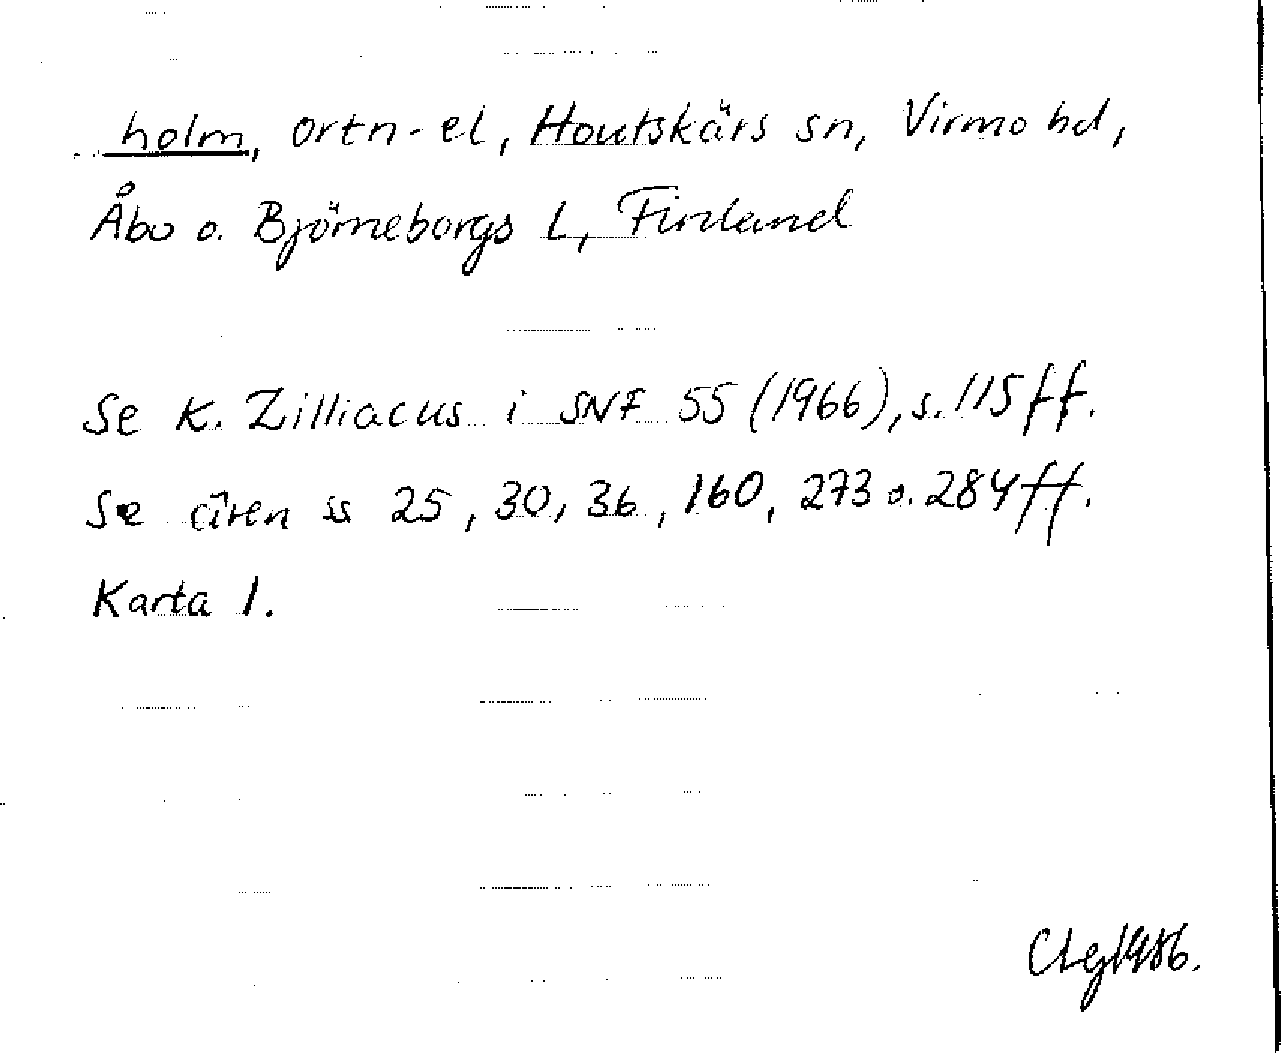 holm, ortn-el, Houtskärs sn, Virmo hd,
Åbo o. Björneborgs l, Finland
Se K. Zilliacus i SNF 55 (1966), s. 115 ff.
Se även ss 25, 30, 36, 160, 273 o. 284 ff.
Karta 1.
1986.